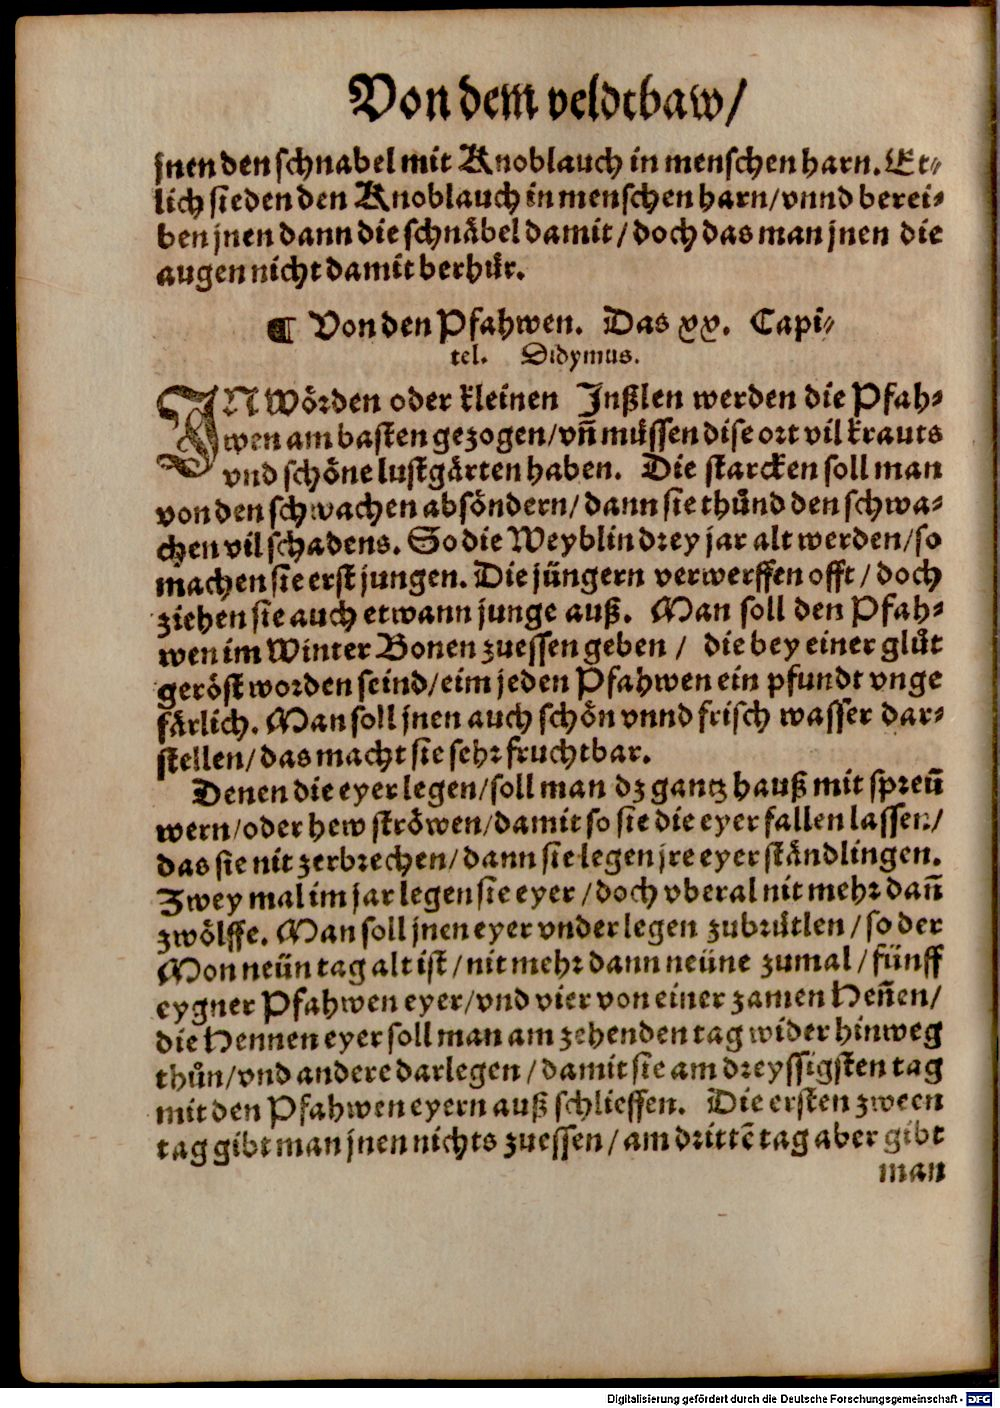 Von dem veldtbaw/
jnen den schnabel mit Knoblauch in menschen harn. Et⸗
lich sieden den Knoblauch in menschen harn/vnnd berei⸗
ben jnen dann die schnäbel damit/doch das man jnen die
augen nicht damit berhür.
¶ Von den Pfahwen. Das xx. Capi⸗
tel. Didymus.
IN Wörden oder kleinen Inßlen werden die Pfah⸗
wen am basten gezogen/vñ müssen dise ort vil krauts
vnd schöne lustgärten haben. Die starcken soll man
von den schwachen absöndern/dann sie thůnd den schwa⸗
chen vil schadens. So die Weyblin drey jar alt werden/so
machen sie erst jungen. Die jüngern verwerffen offt/doch
ziehen sie auch etwann junge auß. Man soll den Pfah⸗
wen im Winter Bonen zuessen geben/ die bey einer glůt
geröst worden seind/eim jeden Pfahwen ein pfundt vnge
färlich. Man soll jnen auch schön vnnd frisch wasser dar⸗
stellen/das macht sie sehr fruchtbar.
Denen die eyer legen/soll man dz gantz hauß mit spreü
wern/oder hew ströwen/damit so sie die eyer fallen lassen/
das sie nit zerbrechen/dann sie legen jre eyer ständlingen.
Zwey mal im jar legen sie eyer/doch vberal nit mehr dañ
zwölffe. Man soll jnen eyer vnder legen zubrütlen/so der
Mon neün tag alt ist/nit mehr dann neüne zumal/fünff
eygner Pfahwen eyer/vnd vier von einer zamen Heñen/
die Hennen eyer soll man am zehenden tag wider hinweg
thůn/vnd andere darlegen/damit sie am dreyssigsten tag
mit den Pfahwen eyern auß schlieffen. Die ersten zween
tag gibt man jnen nichts zuessen/am drittē tag aber gibt
man
Digitalisierung gefördert durch die Deutsche Forschungsgemeinschaft - DFG